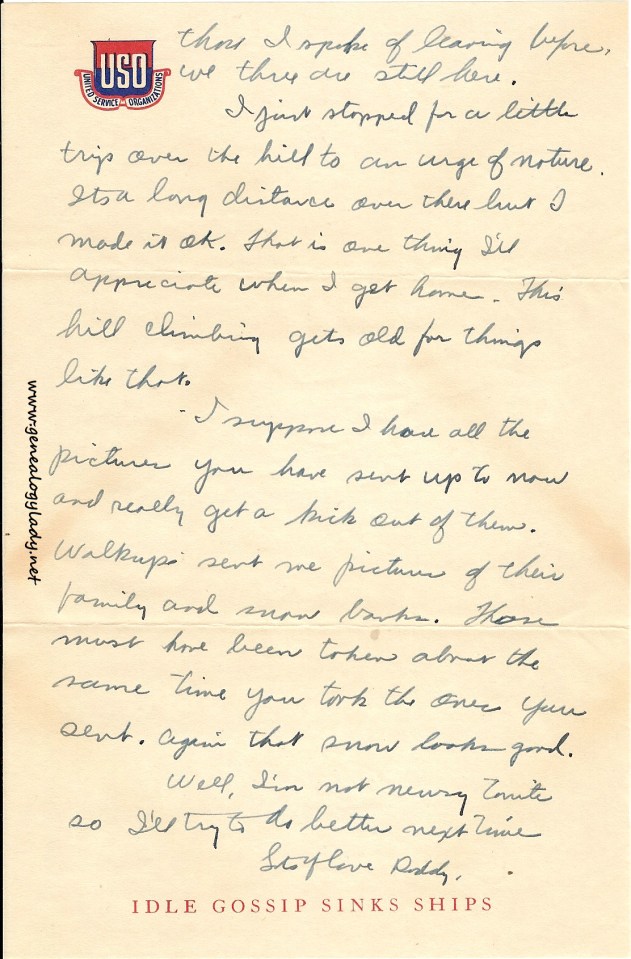 USO
UNITED SERVICE ORGANIZATIONS
those I spoke of leaving before,
we three are still here.
I just stopped for a little
trip over the hill to an urge of nature.
Its a long distance over there but I
made it ok. That is one thing I'll
appreciate when I get home. This
hill climbing gets old for things
like that.
I suppose I have all the
pictures you have sent up to now
and really get a kick out of them.
Walkups sent me pictures of their
family and snow banks. Those
must have been taken about the
same time you took the ones you
sent. Again that snow looks good.
Well, I'm not newsy tonite
so I'll try to do better next time
Lots of love Daddy.
IDLE GOSSIP SINKS SHIPS
www.genealogylady.net